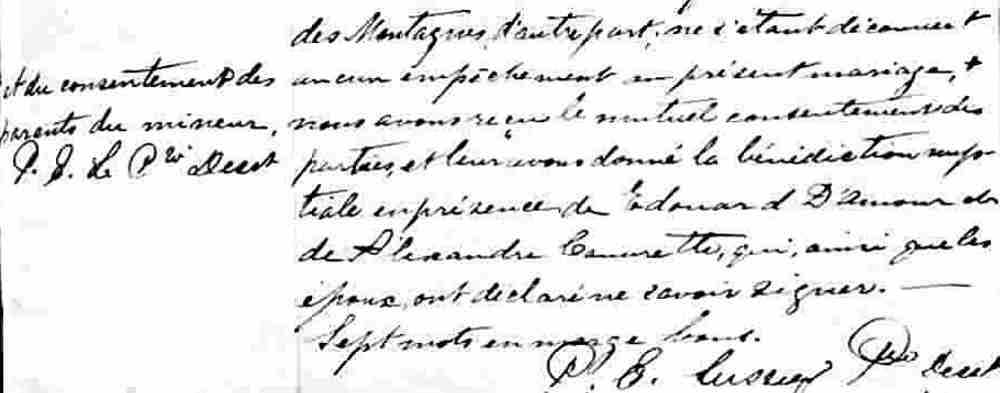 et du consentement des
parents du mineur,
P. E. L. Ptre Desst
des Montagnes, d'autre part; ne s'étant découvert
aucun empêchement au présent mariage, +
nous avons reçu le mutuel consentement des
parties, et leur avons donné la bénédiction nup-
tiale en présence de Edouard D'Amour et
de Alexandre qui, ainsi que les
époux, ont déclaré ne savoir signer. —
Sept mots en marge bons.
P. E. Lussier Ptre Desst